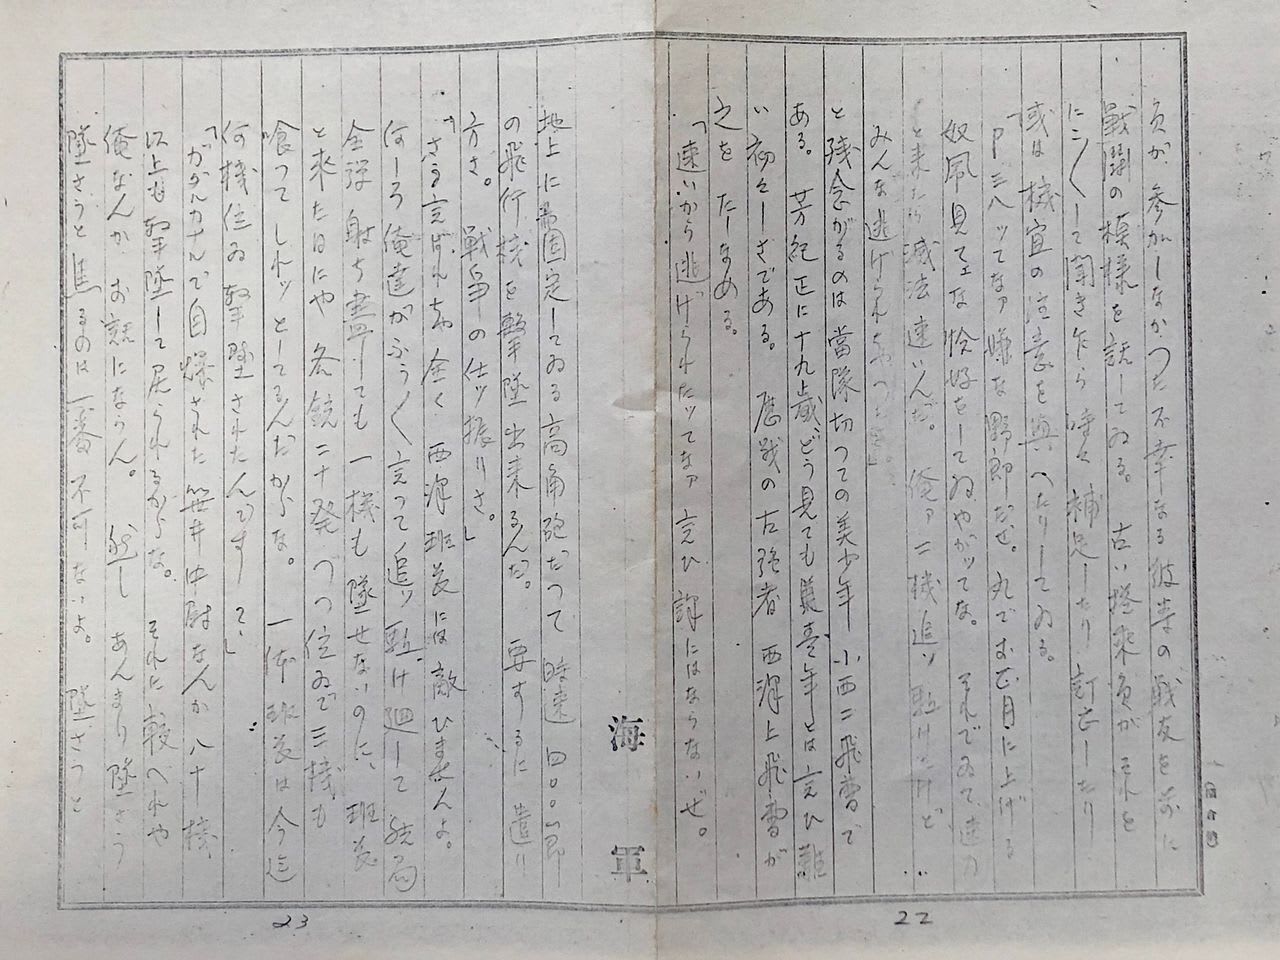 員が、参加しなかつた不幸なる彼等の戦友を前に
戦闘の模様を話してゐる。古い搭乗員がそれを
にこ〱して聞き乍ら時々補足したり訂正したり
或は機宜の注意を與へたりしてゐる。
「P三八ッてなァ嫌な野郎だぜ。丸でお正月に上げる
奴凧見てェな恰好をしてゐやがッてな。それでゐて速力
と来たら滅法速いんだ。俺ァ二機追ッ駈けたけど
みんな逃げられちやつた」
と残念がるのは當隊切つての美少年小西二飛曹で
ある。芳紀正に十九歳、どう見ても青年とは言ひ難
い初々しさである。歴戦の古強者西澤上飛曹が
之をたしなめる。
「速いから逃げられたッてなァ言ひ訳にはならないぜ。
海軍
地上に固定してゐる高角砲だつて時速四〇〇節
の飛行機を撃墜出来るんだ。要するに遣り
方さ。戦争の仕ッ振りさ。」
「さう言はれちや全く西澤班長には敵ひませんよ。
何しろ俺達がふう〱言つて追ッ駈け廻して結局
全弾射ち盡しても一機も墜せないのに、班長
と来た日にや各銃二十発づつ位ゐで三機も
喰つてしれッとしてるんだからな。一体班長は今迄
何機位ゐ撃墜されたんですして」
「ガダルカナルで自爆された笹井中尉なんか八十機
以上も撃墜して居られるからな。それに較べれや
俺なんかお話にならん。然しあんまり墜さう
墜さうと焦るのは一番不可ないよ。墜さうと
22
23